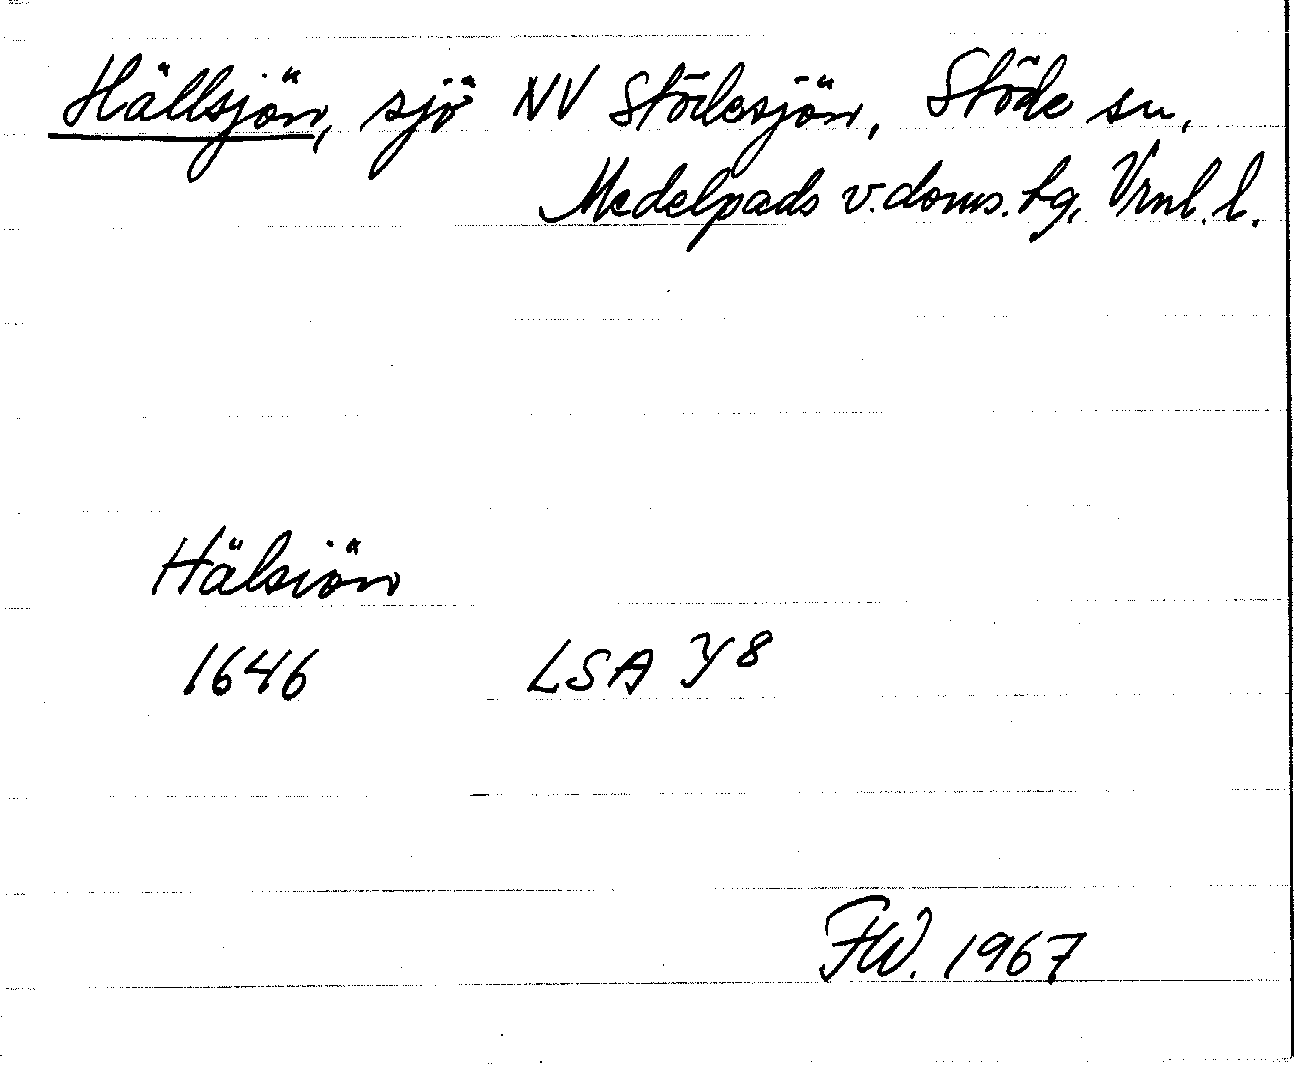 Hällsjön, sjö NV Stödesjön, Stöde sn,
Medelpads v. doms. tg, Vrnl. l.
Hälsiön
1646 LSA Y8
FW. 1967